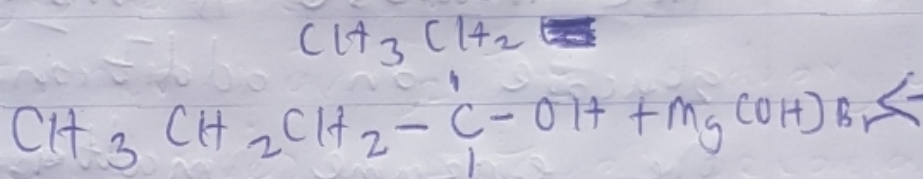 CH3 CH2
CH3 CH2CH2 - C - OH + Mg(OH)Br